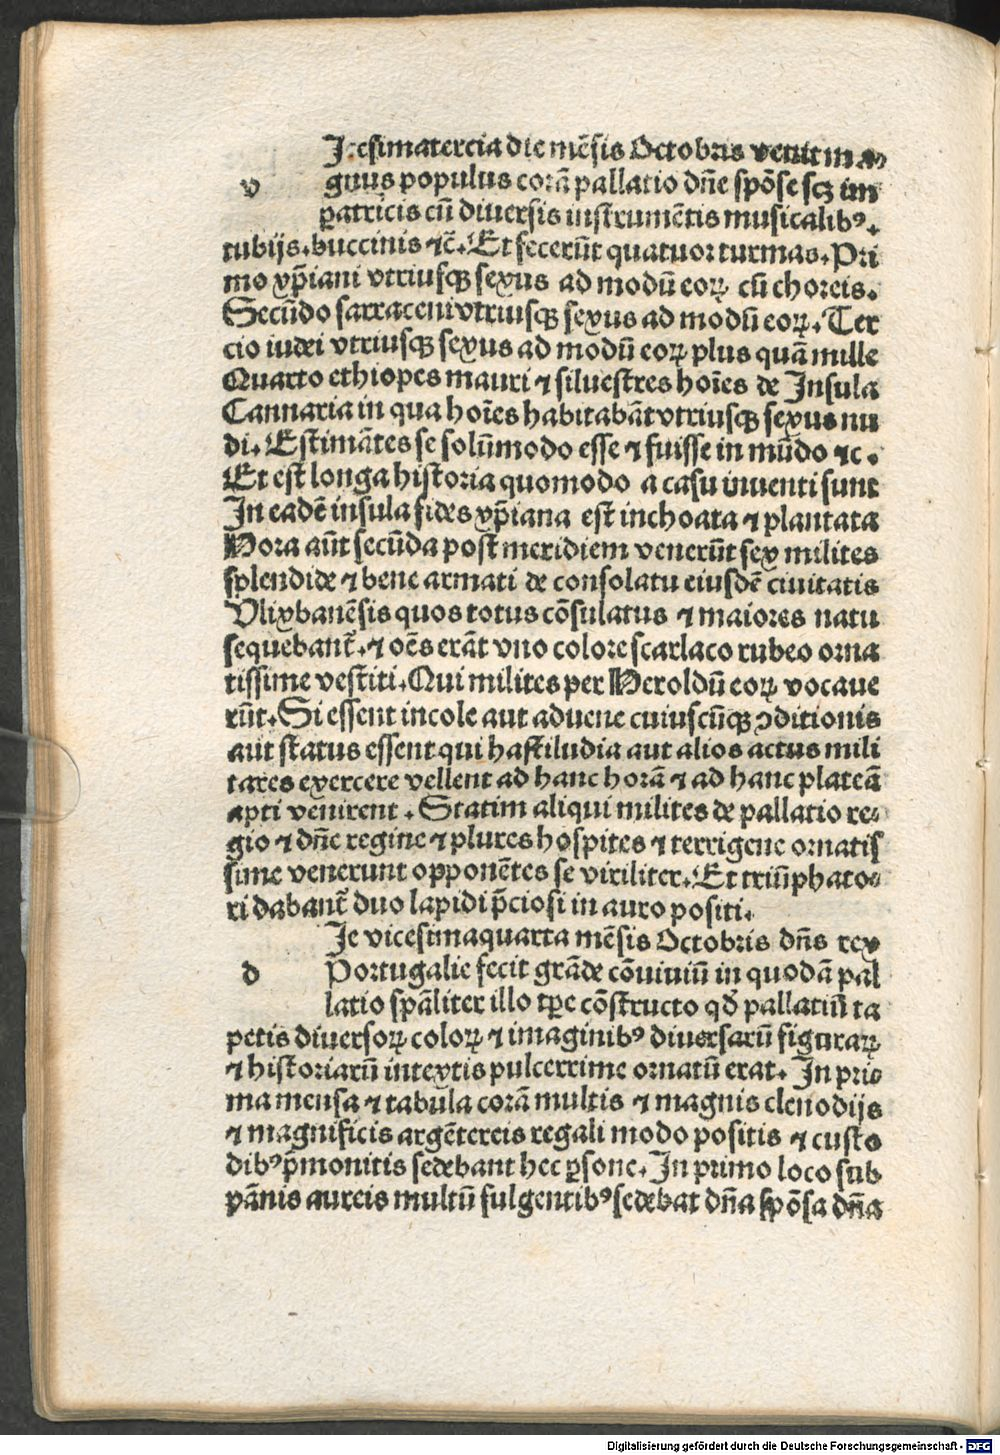 Icesimatercia die mēsis Octobris venit ma⸗
v gnus populus corā pallatio dn̄e spōse scꝫ im
patricis cū diuersis instrumētis musicalibꝰ.
tubijs.buccinis ⁊c̄.Et fecerūt quatuor turmas.Pri
mo xp̄iani vtriusqꝫ sexus ad modū eoꝝ cū choreis.
Secūdo sarraceni vtriusqꝫ sexus ad modū eoꝝ.Ter
cio iudei vtriusqꝫ sexus ad modū eoꝝ plus quā mille
Quarto ethiopes mauri ⁊ siluestres hoīes de Insula
Cannaria in qua hoīes habitabāt vtriusqꝫ sexus nu
di.Estimātes se solūmodo esse ⁊ fuisse in mūdo ⁊c.
Et est longa historia quomodo a casu inuenti sunt
In eadē insula fides xp̄iana est inchoata ⁊ plantata
Hora aūt secūda post meridiem venerūt sex milites
splendide ⁊ bene armati de consolatu eiusdē ciuitatis
Vlixbanēsis quos totus cōsulatus ⁊ maiores natu
sequebant̄.⁊ oēs erāt vno colore scarlaco rubeo orna
tissime vestiti.Qui milites per Heroldū eoꝝ vocaue
rūt.Si essent incole aut aduene cuiuscūqꝫ ↄditionis
aut status essent qui hastiludia aut alios actus mili
tares exercere vellent ad hanc horā ⁊ ad hanc plateā
apti venirent.Statim aliqui milites de pallatio re⸗
gio ⁊ dn̄e regine ⁊ plures hospites ⁊ terrigene ornatis
sime venerunt opponētes se viriliter.Et triūphato⸗
ri dabant̄ duo lapidi p̄ciosi in auro positi.
Ie vicesimaquarta mēsis Octobris dn̄s rex
d Portugalie fecit grāde cōuiuiū in quodā pal
latio spāliter illo tꝑe cōstructo qd̓ pallatiū ta
petis diuersoꝝ coloꝝ ⁊ imaginibꝰ diuersarū figuraꝝ
⁊ historiarū intextis pulcerrime ornatū erat.In pri⸗
ma mensa ⁊ tabula corā multis ⁊ magnis clenodijs
⁊ magnificis argētereis regali modo positis ⁊ custo
dibꝰ p̄monitis sedebant hec ꝑsone.In primo loco sub
pānis aureis multū fulgentibꝰ sedebat dn̄a spōsa dn̄a
Digitalisierung gefördert durch die Deutsche Forschungsgemeinschaft - DFG